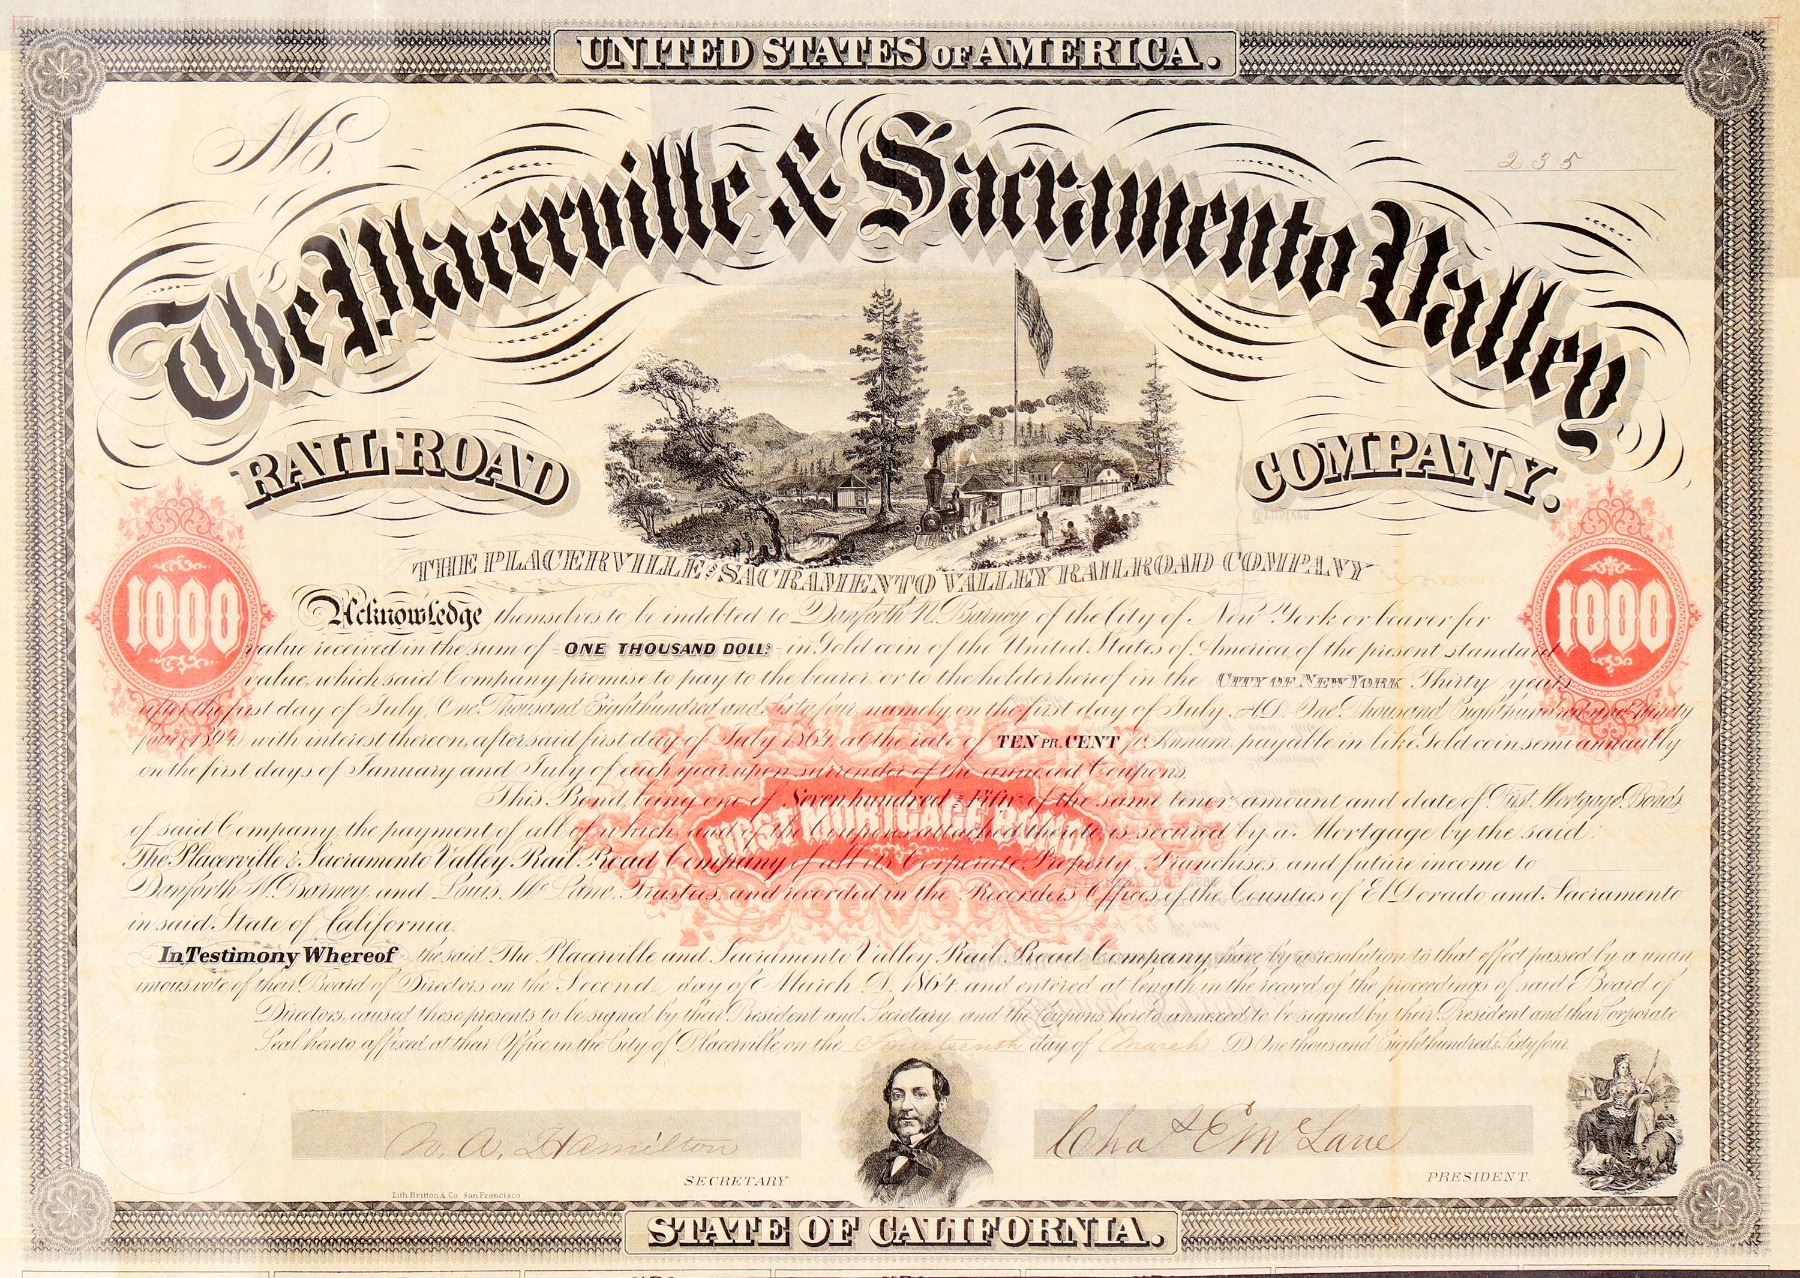 UNITED STATES OF AMERICA.
No. 235
The Placerville & Sacramento Valley
RAILROAD COMPANY.
THE PLACERVILLE AND SACRAMENTO VALLEY RAILROAD COMPANY
1000 1000
Acknowledge themselves to be indebted to Danforth N. Barney of the City of New York or bearer for
value received in the sum of ONE THOUSAND DOLLS in Gold coin of the United States of America of the present standard
value, which said Company promise to pay to the bearer, or to the holder hereof in the CITY OF NEW YORK Thirty years
after the first day of July, One Thousand Eight hundred and Sixty four namely on the first day of July A.D. One Thousand Eight hundred and Ninety
four, 1894, with interest thereon, after said first day of July 1864, at the rate of TEN PR. CENT Annum payable in like Gold coin semi annually
on the first days of January and July of each year upon surrender of the annexed Coupons.
This Bond being one of Seven hundred and Fifty of the same tenor amount and date of First Mortgage Bonds
of said Company, the payment of all of which, and of the Coupons attached thereto is secured by a Mortgage by the said
FIRST MORTGAGE BOND
The Placerville & Sacramento Valley Rail Road Company of all its Corporate Property, Franchises, and future income to
Danforth N. Barney, and Louis McLane, Trustees, and recorded in the Recorders Offices of the Counties of El Dorado and Sacramento
in said State of California.
In Testimony Whereof the said The Placerville and Sacramento Valley Rail Road Company, have by a resolution to that effect passed by a unan
imous vote of their Board of Directors on the Second day of March D. 1864 and entered at length in the record of the proceedings of said Board of
Directors, caused these presents to be signed by their President and Secretary, and the Coupons hereto annexed to be signed by their President and their Corporate
Seal hereto affixed at their Office in the City of Placerville on the Fourteenth day of March D One thousand Eight hundred & Sixty four
W. A. Hamilton Chas E McLane
SECRETARY PRESIDENT.
Lith. Britton & Co. San Francisco
STATE OF CALIFORNIA.